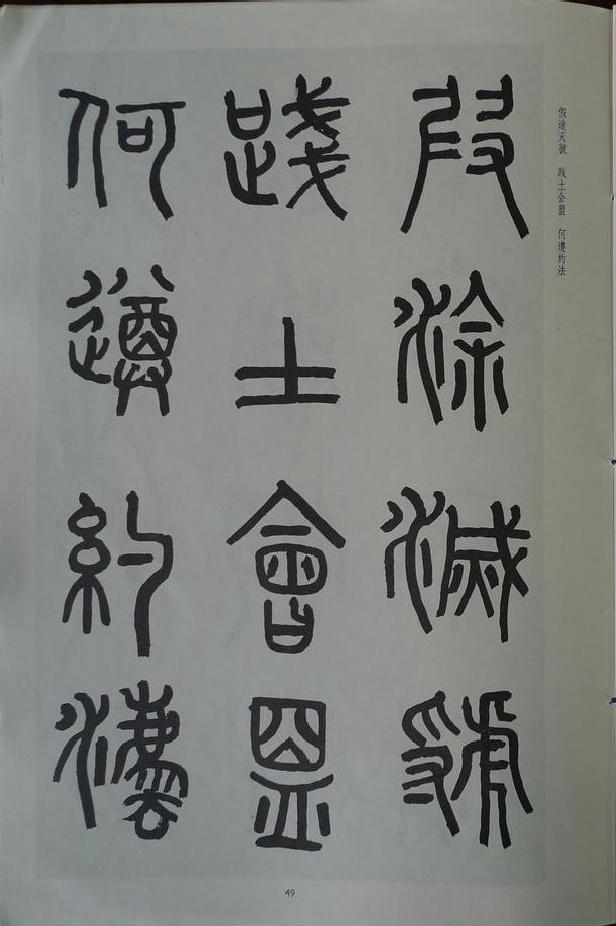 假途灭虢 践土会盟 何遵约法
叚涂滅虢
踐土會盟
何遵約灋
49